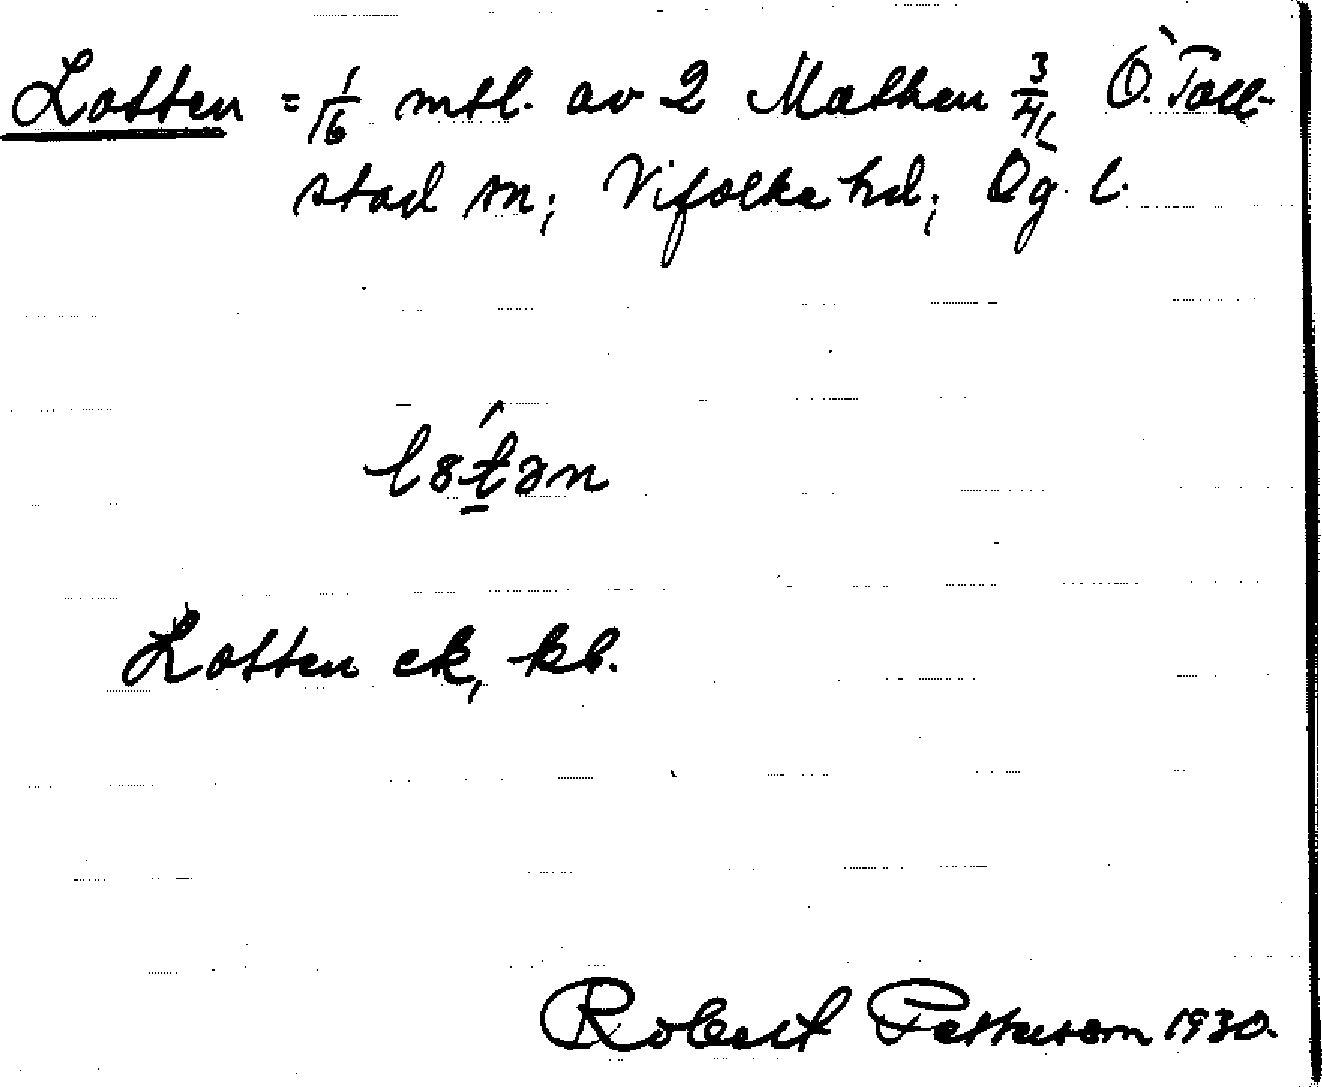 Lotten = 1/16 mtl. av 2 Mathem 3/4 Ö. Toll-
stad sn; Vifolka hd; Ög. l.
l8t́ən
Lotten ek, kb.
Robert Petterson 1930.